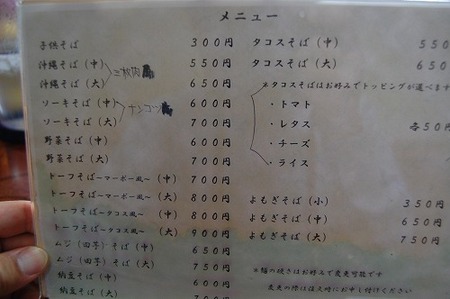 メニュー
子供そば 300円
沖縄そば (中) 550円
沖縄そば (大) 650円
三枚肉
ソーキそば (中) 600円
ソーキそば (大) 700円
ナンコツ
野菜そば (中) 600円
野菜そば (大) 700円
トーフそば~マーボー風~ (中) 700円
トーフそば~マーボー風~ (大) 800円
トーフそば~タコス風~ (中) 800円
トーフそば~タコス風~ (大) 900円
ムジ (田芋) そば (中) 650円
ムジ (田芋) そば (大) 750円
納豆そば (中) 600円
納豆そば (大) 700円
タコスそば (中) 550
タコスそば (大) 650
※タコスそばはお好みでトッピングが選べます
・トマト
・レタス
・チーズ
・ライス
各50円
よもぎそば (小) 350円
よもぎそば (中) 650円
よもぎそば (大) 750円
※麺の焼きはお好みで変更可能です
変更の際は注文時にお申し付けください